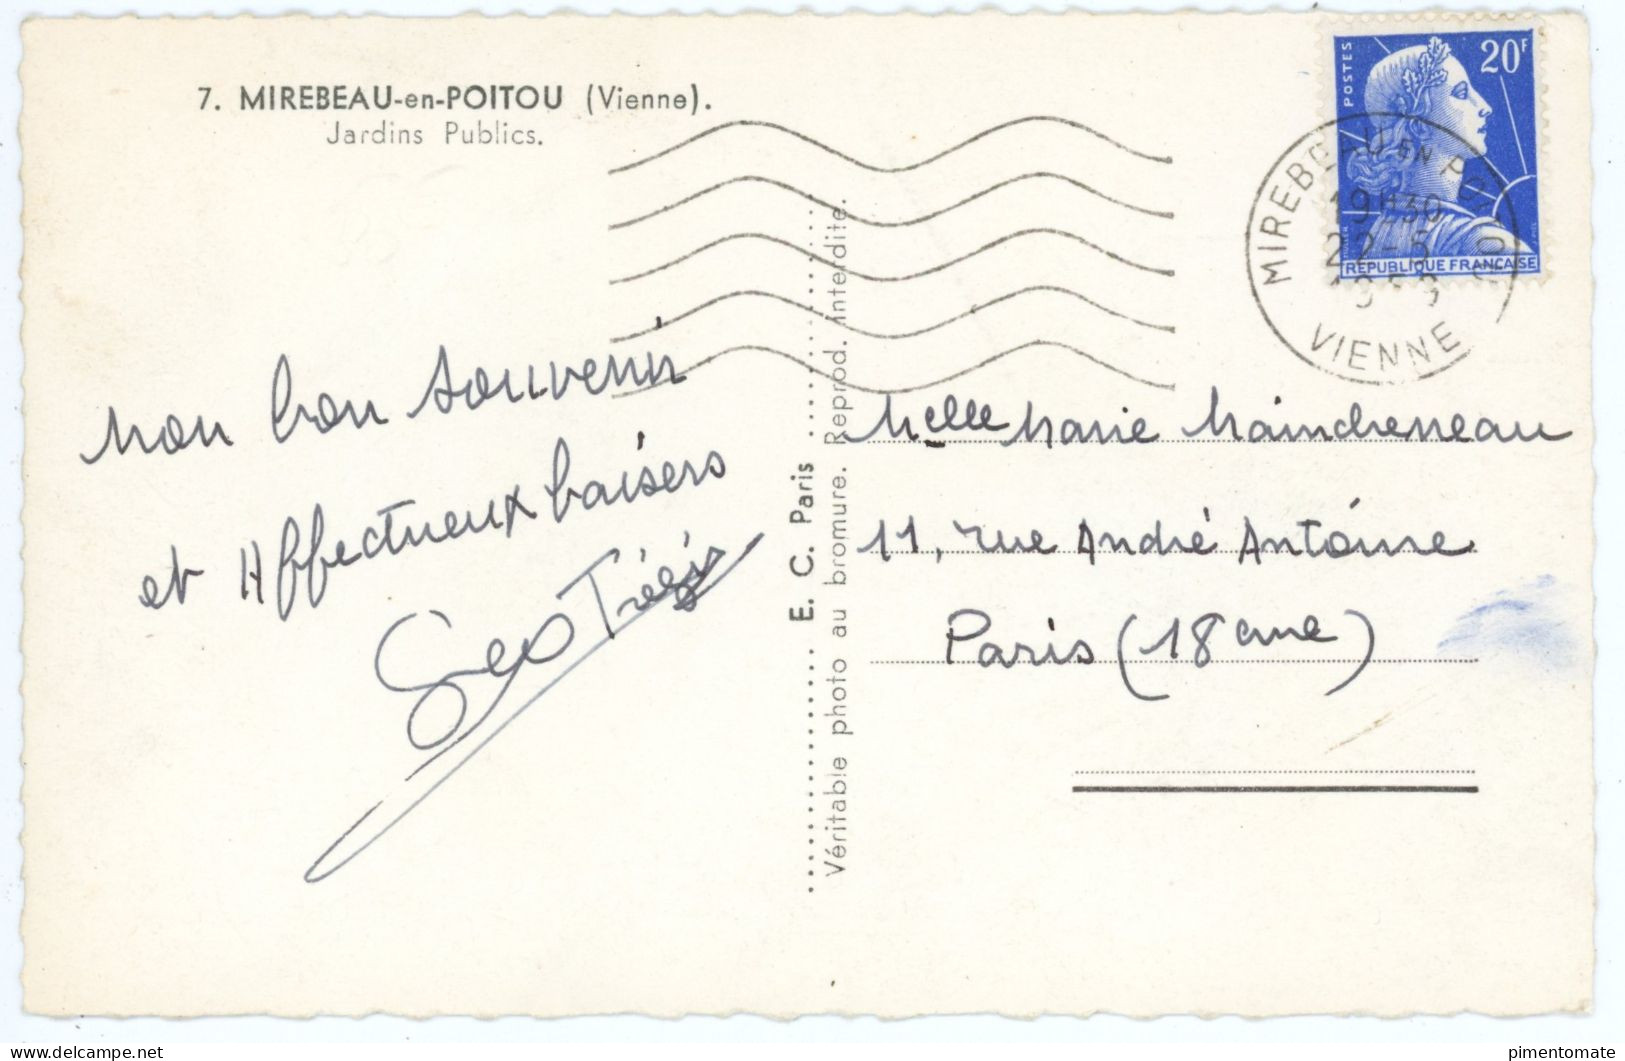 7. MIREBEAU-en-POITOU (Vienne).
Jardins Publics.
POSTES
20F
RÉPUBLIQUE FRANÇAISE
MIREBEAU EN POITOU
19H30
22-5
VIENNE
Mon bon souvenir
et Affectueux baisers
E. C. Paris
Véritable photo au bromure. Reprod. interdite.
Melle Marie
11, rue André Antoine
Paris (18eme)
www.delcampe.net
pimentomate